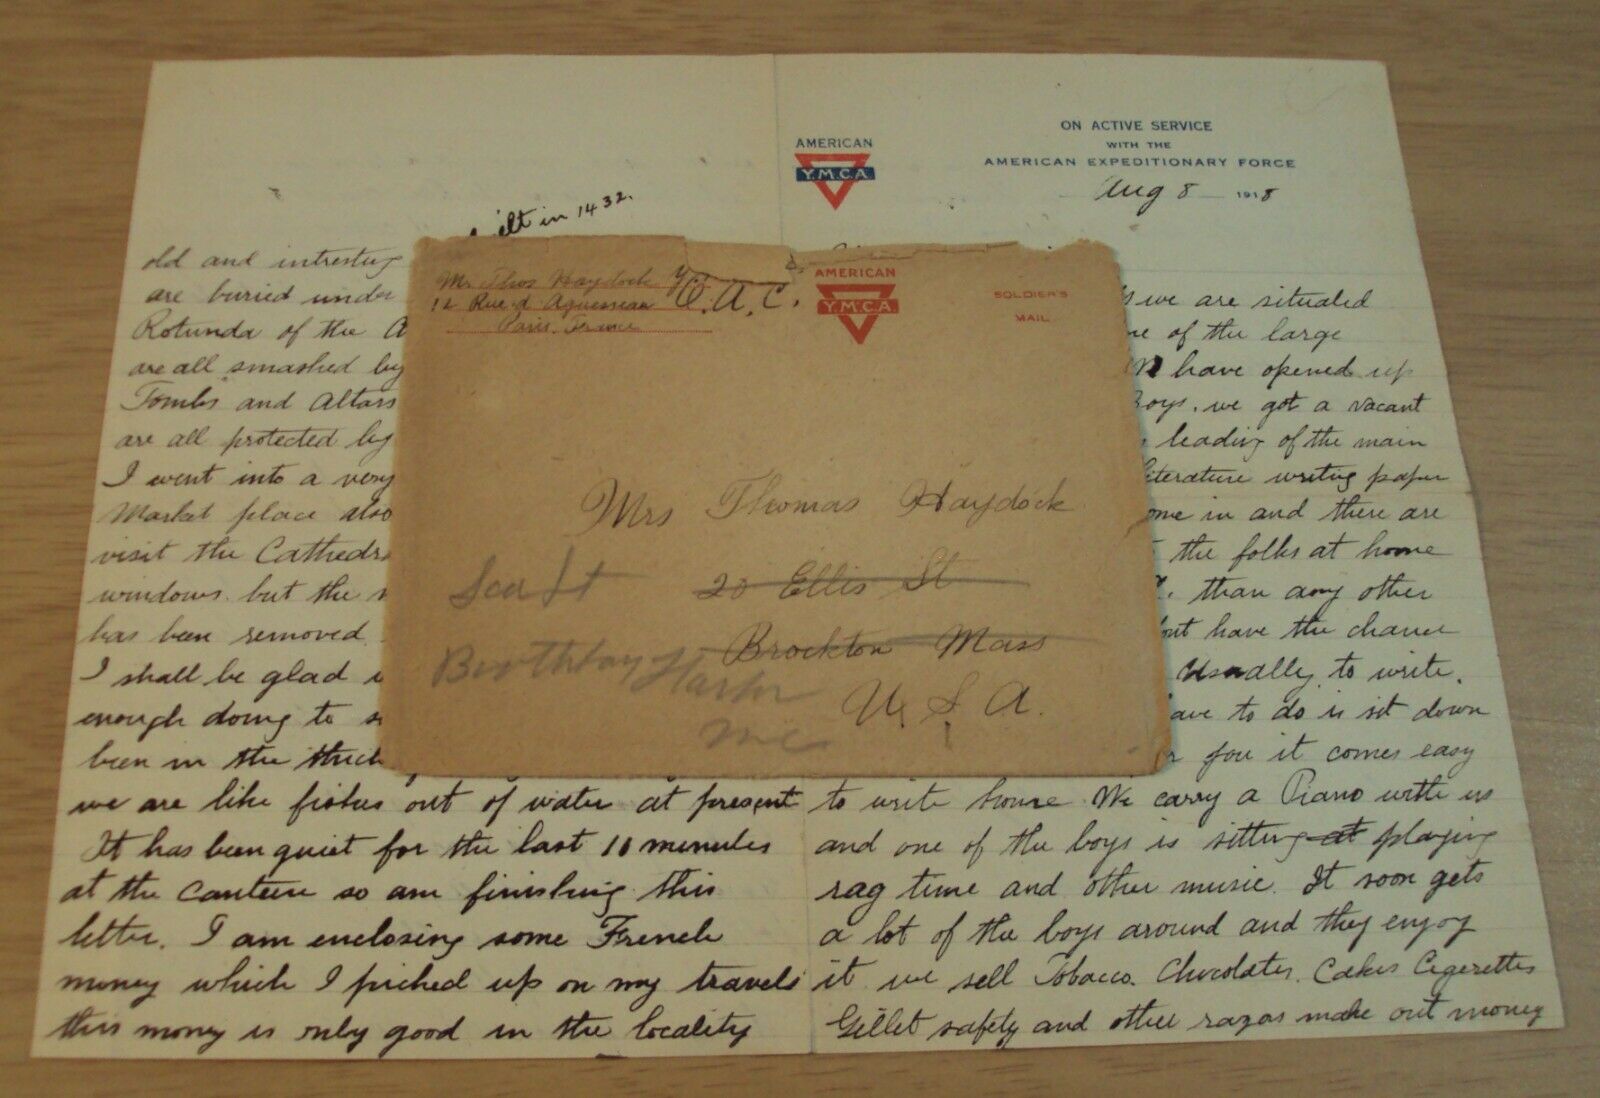 AMERICAN
Y.M.C.A.
ON ACTIVE SERVICE
WITH THE
AMERICAN EXPEDITIONARY FORCE
Aug 8 1918
in 1432.
old and intresting
are buried under
Rotunda of the
are all smashed by
Tombs and Altars
are all protected by
I went into a very
Market place also
visit the Cathedr
windows but the
has been removed
I shall be glad
enough doing to
been in the thick
we are like fishes out of water at present
It has been quiet for the last 10 minutes
at the Canteen so am finishing this
letter. I am enclosing some French
money which I picked up on my travels
this money is only good in the locality
Mr Thos Haydock Y
12 Rue d Aguesseau
Paris. France
O.A.C.
AMERICAN
Y.M.C.A.
SOLDIER'S
MAIL
Mrs Thomas Haydock
20 Ellis St
Brockton Mass
U. S. A.
Boothbay Harbor
Me
we are situated
of the large
have opened up
Boys. we got a vacant
leading of the main
literature writing paper
come in and there are
the folks at home
than any other
dont have the chance
usually to write.
have to do is sit down
for you it comes easy
to write home. We carry a Piano with us
and one of the boys is sitting at playing
rag time and other music. It soon gets
a lot of the boys around and they enjoy
it we sell Tobacco. Chocolates. Cakes Cigerettes
Gillet safety and other razos make out money